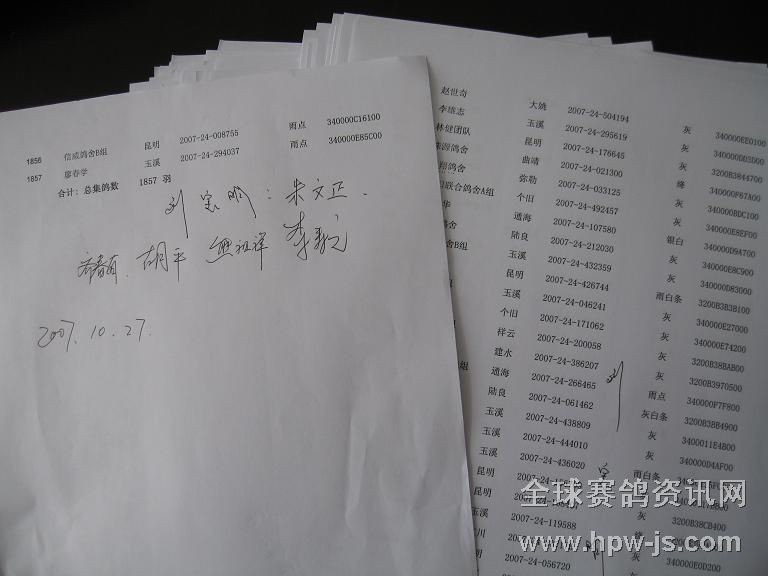 1856 信威鸽舍B组 昆明 2007-24-008755 雨点 340000C16100
1857 廖春学 玉溪 2007-24-294037 雨点 340000E85C00
合计：总集鸽数 1857 羽
刘宝明：朱文正.
胡平 熊祖祥 李
2007.10.27.
赵世奇 大姚 2007-24-504194 灰 340000EE0100
李雄志 玉溪 2007-24-295619 灰 340000D03000
林健团队 昆明 2007-24-176645 灰 3200B3844700
源鸽舍 曲靖 2007-24-021300 绛 340000F67A00
翔鸽舍 弥勒 2007-24-033125 灰 340000BDC100
联合鸽舍A组 个旧 2007-24-492457 灰 340000E8EF00
华 通海 2007-24-107580 银白 340000D9A700
鸽舍 陆良 2007-24-212030 灰 340000E8C900
B组 玉溪 2007-24-432359 灰 340000D83000
昆明 2007-24-426744 雨白条 3200B3B3B100
玉溪 2007-24-046241 灰 340000E27000
个旧 2007-24-171062 灰 340000E74200
祥云 2007-24-200058 灰 3200B38BAB00
建水 2007-24-386207 灰 3200B3970500
组 通海 2007-24-266465 雨点 340000F7F800
陆良 2007-24-061462 灰白条 3200B3BB4900
玉溪 2007-24-438809 灰 3400011E4B00
玉溪 2007-24-444010 灰 340000D4AF00
玉溪 2007-24-436020 雨白条
昆明
昆明 灰 3200B38CB400
玉溪 2007-24-119588
川
明 2007-24-056720 灰 340000E0D200
刘
宝
明
全球赛鸽资讯网
www.hpw-js.com